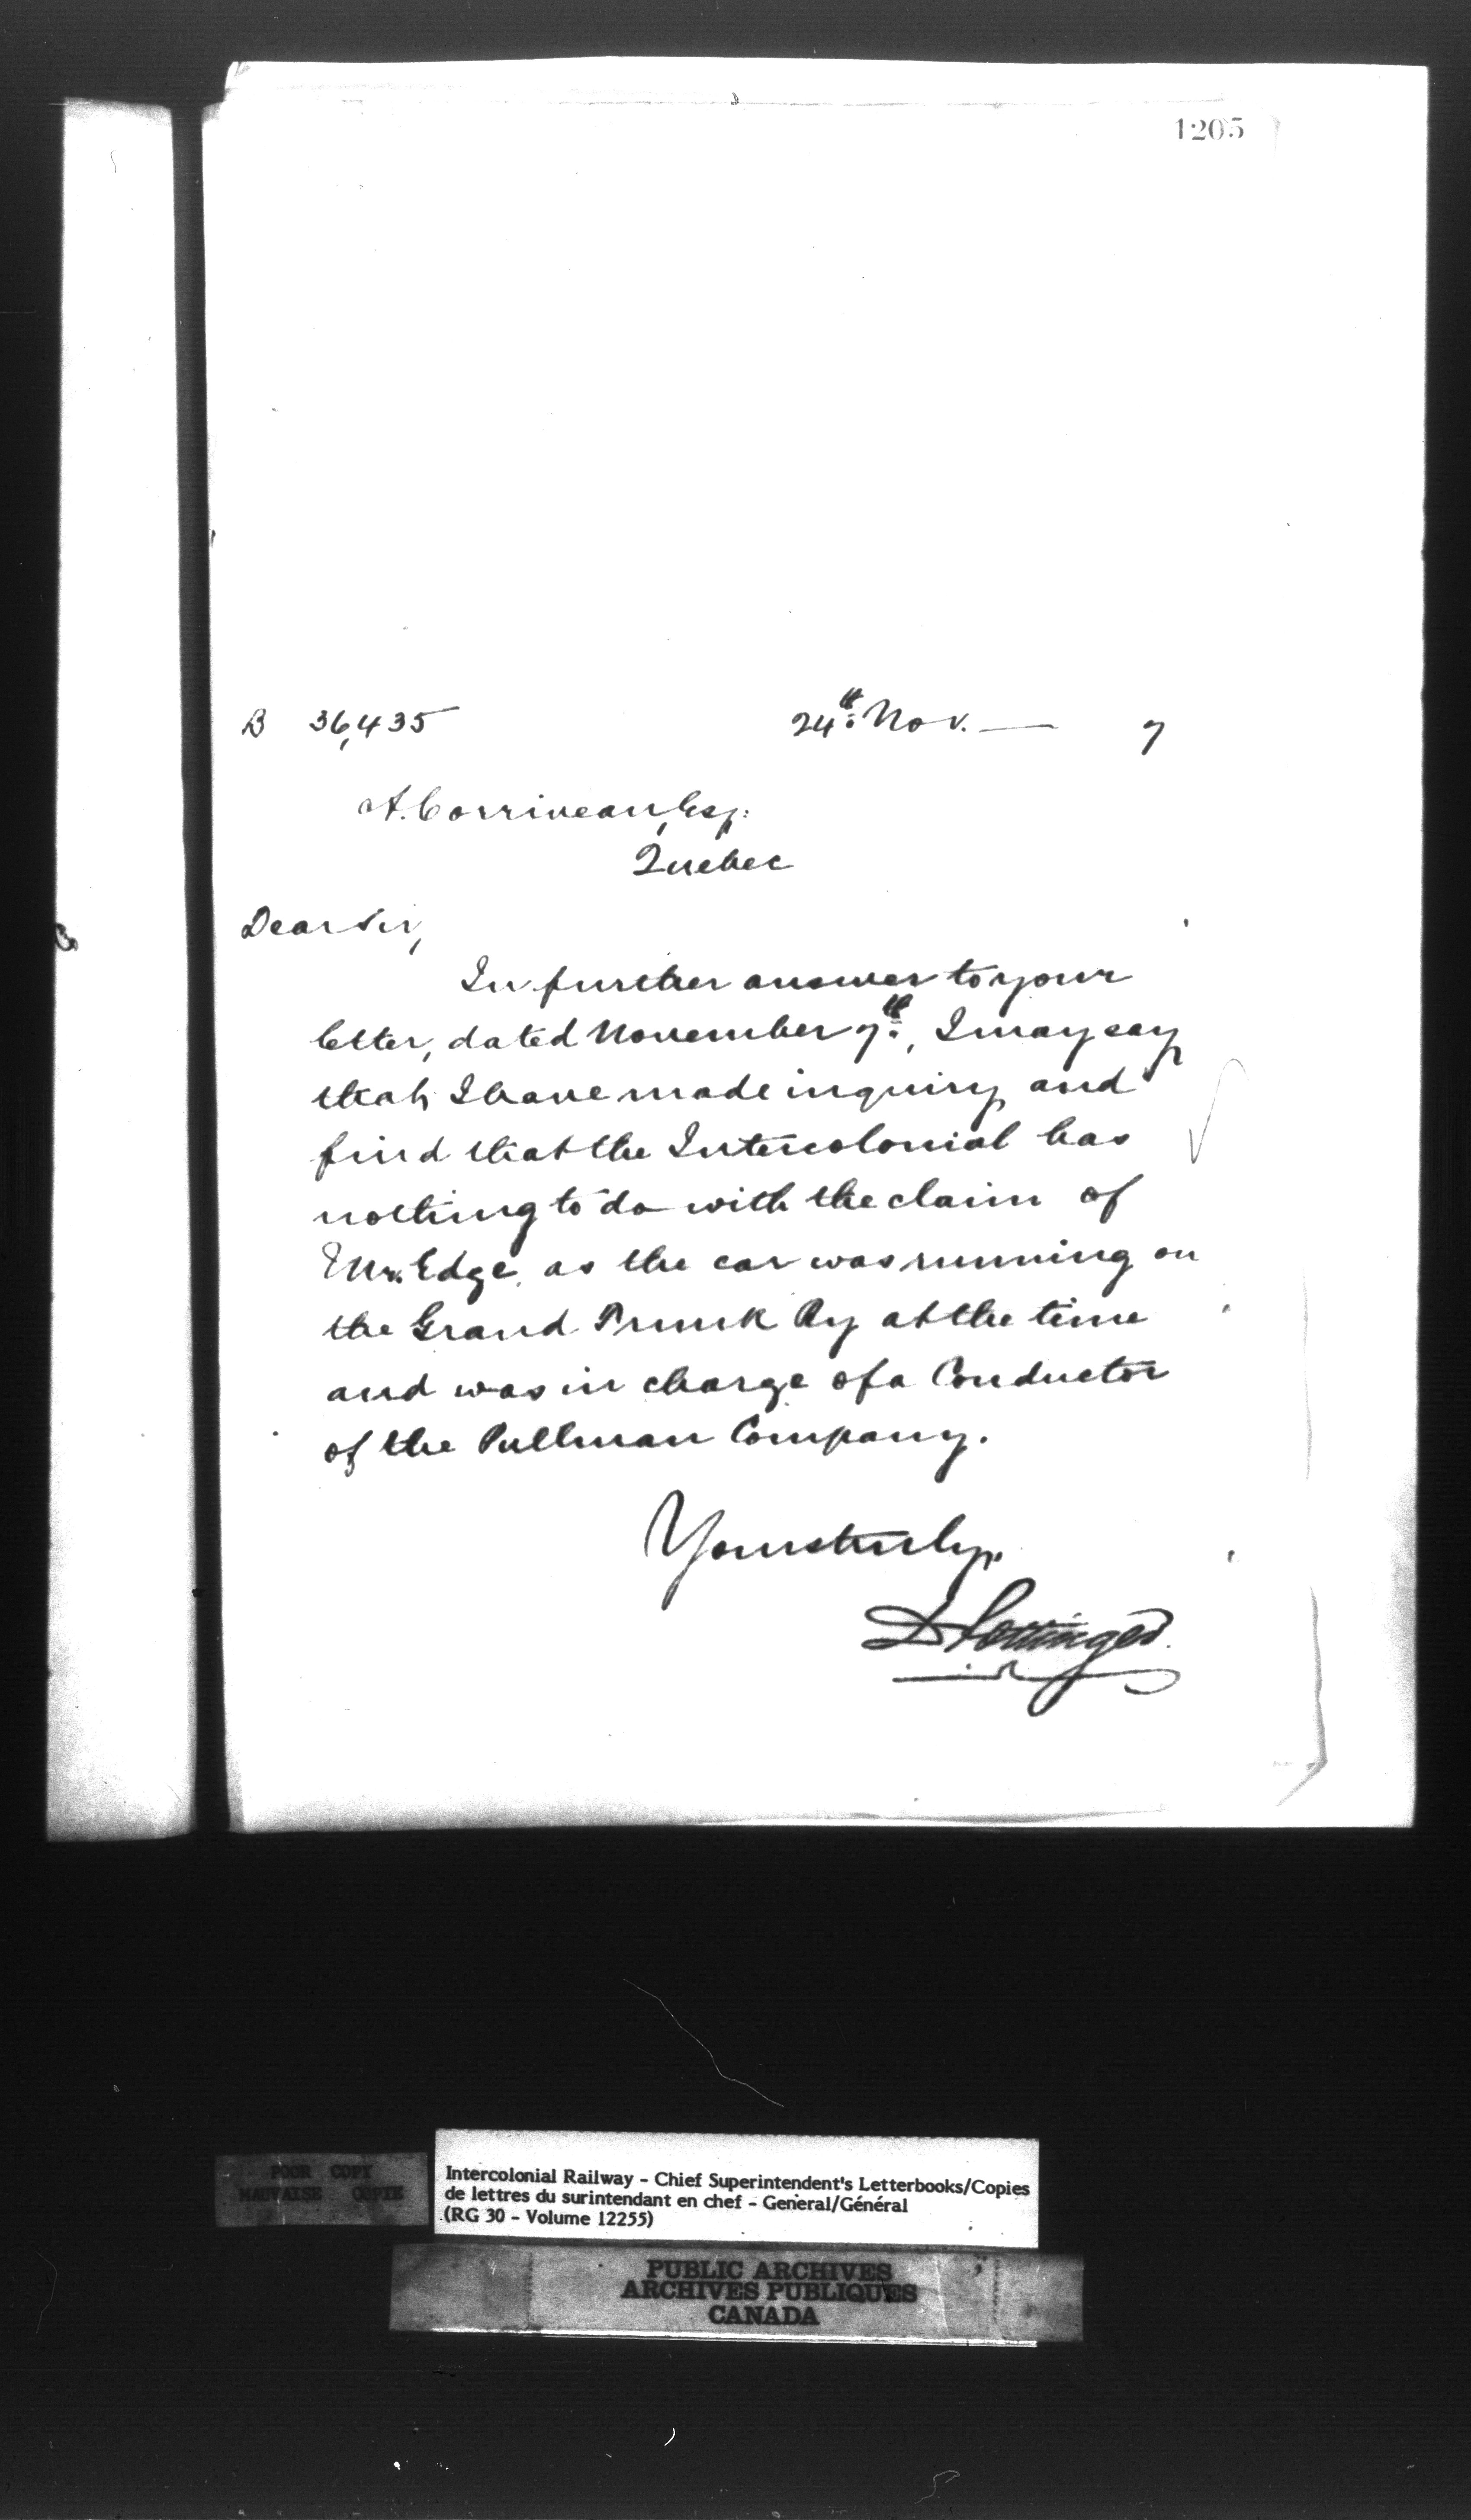 1205
B 36,435 24th Nov. — 7
A. Corriveau, Esq:
Quebec
Dear Sir,
In further answer to your
letter, dated November 7th, I may say
that I have made inquiry and
find that the Intercolonial has
nothing to do with the claim of
Mr. Edge, as the car was running on
the Grand Trunk Ry at the time
and was in charge of a Conductor
of the Pullman Company.
Yours truly,
D Pottinger
POOR COPY
MAUVAISE COPIE
Intercolonial Railway - Chief Superintendent's Letterbooks/Copies
de lettres du surintendant en chef - General/Général
(RG 30 - Volume 12255)
PUBLIC ARCHIVES
ARCHIVES PUBLIQUES
CANADA